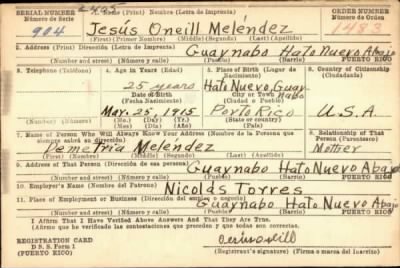 SERIAL NUMBER 1. Name (Print) Nombre (Letra de Imprenta) ORDER NUMBER
Número de Serie Número de Orden
904 Jesús Oneill Meléndez 1483
(First) (Primer Nombre) (Middle) (Segundo) (Last) (Apellido)
2. Address (Print) Dirección (Letra de Imprenta)
Guaynabo Hato Nuevo Abajo
Number and street) (Número y calle) (Town) (Pueblo) PUERTO RICO
3. Telephone (Teléfono) 4. Age in Years (Edad) 5. Place of Birth (Lugar de Nacimiento) 6. Country of Citizenship (Ciudadanía)
25 years Hato Nuevo, Guaynabo
Date of Birth (Fecha Nacimiento) City or Town (Ciudad o Pueblo)
Mar. 25, 1915 Porto Rico U.S.A.
(Mo.) (Day) (Yr.) (State or country)
(Mes) (Día) (Año)
7. Name of Person Who Will Always Know Your Address (Nombre de la Persona que siempre sabrá su dirección) 8. Relationship of That Person (Parentesco)
Demetria Meléndez Mother
(First) (Primer Nombre) (Middle) (Segundo) (Last) (Apellido)
9. Address of That Person (Dirección de esa persona)
Guaynabo Hato Nuevo Abajo
Number and street) (Número y calle) (Town) (Pueblo) PUERTO RICO
10. Employer's Name (Nombre del Patrono)
Nicolás Torres
11. Place of Employment or Business (Dirección del empleo o negocio)
Guaynabo Hato Nuevo Abajo
(Number and street) (Número y calle) (Town) (Pueblo) PUERTO RICO
I Affirm That I Have Verified Above Answers And That They Are True.
(Afirmo que he verificado las contestaciones que preceden y que todas son correctas.
REGISTRATION CARD
D. S. S. Form 1
(PUERTO RICO) (Registrant's signature) (Firma o marca del Inscrito)